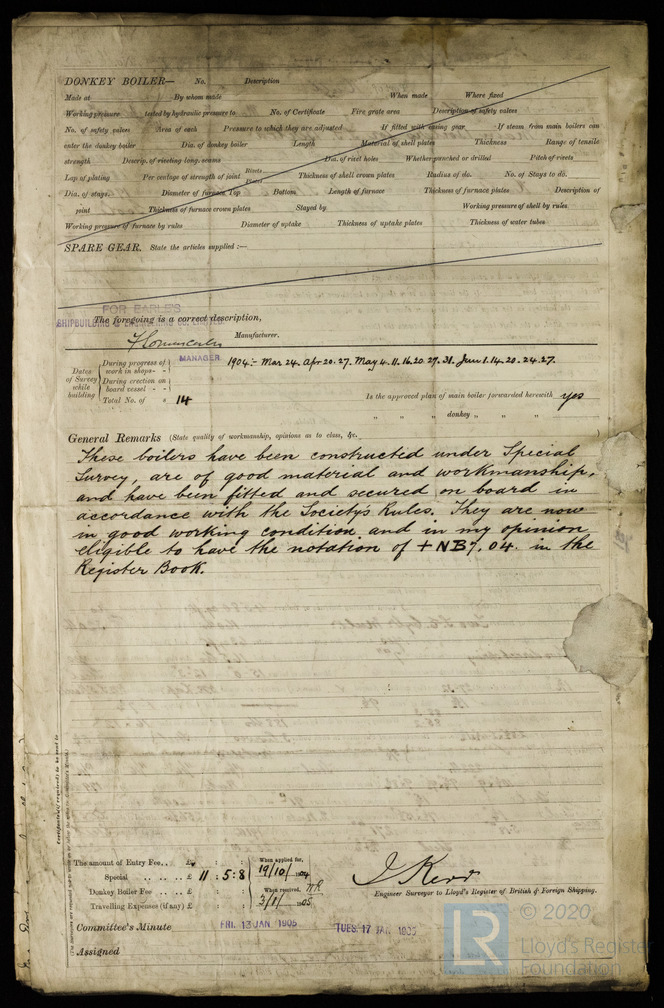 DONKEY BOILER— No. Description
Made at By whom made When made Where fixed
Working pressure tested by hydraulic pressure to No. of Certificate Fire grate area Description of safety valves
No. of safety valves Area of each Pressure to which they are adjusted If fitted with easing gear If steam from main boilers can
enter the donkey boiler Dia. of donkey boiler Length Material of shell plates Thickness Range of tensile
strength Descrip. of riveting long. seams Dia. of rivet holes Whether punched or drilled Pitch of rivets
Lap of plating Per centage of strength of joint Rivets Plates Thickness of shell crown plates Radius of do. No. of Stays to do.
Dia. of stays. Diameter of furnace Top Bottom Length of furnace Thickness of furnace plates Description of
joint Thickness of furnace crown plates Stayed by Working pressure of shell by rules
Working pressure of furnace by rules Diameter of uptake Thickness of uptake plates Thickness of water tubes
SPARE GEAR. State the articles supplied :—
FOR EARLE'S
The foregoing is a correct description,
SHIPBUILDING & ENGINEERING CO. LIMITED.
Manufacturer.
MANAGER
Dates of Survey while building
During progress of work in shops - - 1904:- Mar 24. Apr 20. 27. May 4. 11. 16. 20. 27. 31. Jun 1. 14. 20. 24. 27.
During erection on board vessel - -
Total No. of 14
Is the approved plan of main boiler forwarded herewith yes
" " " donkey " " "
General Remarks (State quality of workmanship, opinions as to class, &c. )
These boilers have been constructed under Special
Survey, are of good material and workmanship,
and have been fitted and secured on board in
accordance with the Society's Rules. They are now
in good working condition and in my opinion
eligible to have the notation of + NB 7. 04. in the
Register Book.
The amount of Entry Fee.. £ : :
Special .. .. .. £ 11 : 5 : 8
Donkey Boiler Fee .. .. .. £ : :
Travelling Expenses (if any) £ : :
When applied for,
19/10/1904
When received,
3/1/1905
J Kerr
Engineer Surveyor to Lloyd's Register of British & Foreign Shipping.
Committee's Minute FRI. 13 JAN 1905 TUES. 17 JAN. 1905
Assigned
LR
© 2020
Lloyd's Register
Foundation